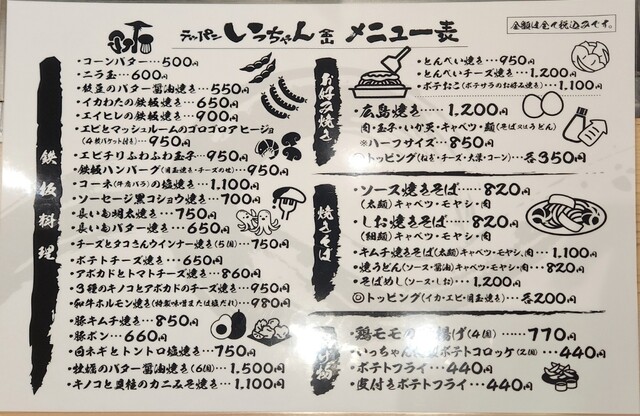 テッパン いっちゃん メニュー表
金額は全て税込みです。
鉄板料理
・コーンバター…500円
・ニラ玉…600円
・枝豆のバター醤油焼き…550円
・イカわたの鉄板焼き…650円
・エイヒレの鉄板焼き…900円
・エビとマッシュルームのゴロゴロアヒージョ
(4枚バケット付き)…950円
・エビチリふわふわ玉子…950円
・鉄板ハンバーグ(目玉焼き・チーズのせ)…950円
・コーネ(牛肩バラ)の塩焼き…1.100円
・ソーセージ黒コショウ焼き…700円
・長いも明太焼き…750円
・長いもバター焼き…650円
・チーズとタコさんウインナー焼き(5個)…750円
・ポテトチーズ焼き…650円
・アボカドとトマトチーズ焼き…860円
・3種のキノコとアボカドのチーズ焼き…950円
・和牛ホルモン焼き(特製味噌または塩だれ)…980円
・豚キムチ焼き…850円
・豚ポン…660円
・白ネギとトントロ塩焼き…750円
・牡蠣のバター醤油焼き(6個)…1.500円
・キノコと豆腐のカニみそ焼き…1.100円
お好み焼き
・とんぺい焼き…950円
・とんぺいチーズ焼き…1.200円
・ポテおこ(ポテサラのお好み焼き)…1.100円
・広島焼き……1.200円
肉・玉子・いか天・キャベツ・麺(そば又はうどん)
※ハーフサイズ…850円
◎トッピング(ねぎ・チーズ・大葉・コーン)…各350円
焼きそば
・ソース焼きそば……820円
(太麺)キャベツ・モヤシ・肉
・しお焼きそば……820円
(細麺)キャベツ・モヤシ・肉
・キムチ焼そば(太麺)キャベツ・モヤシ、肉…1.100円
・焼うどん(ソース・醤油)キャベツ・モヤシ・肉…820円
・そばめし(ソース・しお)…1.200円
◎トッピング(イカ・エビ・目玉焼き)…各200円
・鶏モモの 揚げ(4個)……770円
・いっちゃん ポテトコロッケ(2個)…440円
・ポテトフライ…440円
・皮付きポテトフライ…440円